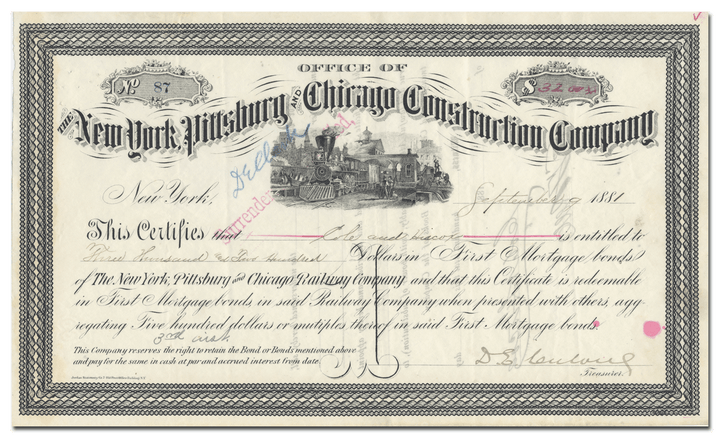 OFFICE OF
No 87
$ 3200
THE New York, Pittsburg AND Chicago Construction Company
Surrendered,
New York, September 9 1881
This Certifies that Cole and is entitled to
Three thousand & Two hundred Dollars in First Mortgage bonds
of The New York, Pittsburg and Chicago Railway Company and that this Certificate is redeemable
in First Mortgage bonds in said Railway Company when presented with others, agg-
regating Five hundred dollars or mutiples thereof in said First Mortgage bonds
This Company reserves the right to retain the Bond or Bonds mentioned above
and pay for the same in cash at par and accrued interest from date
D. E.
Treasurer.